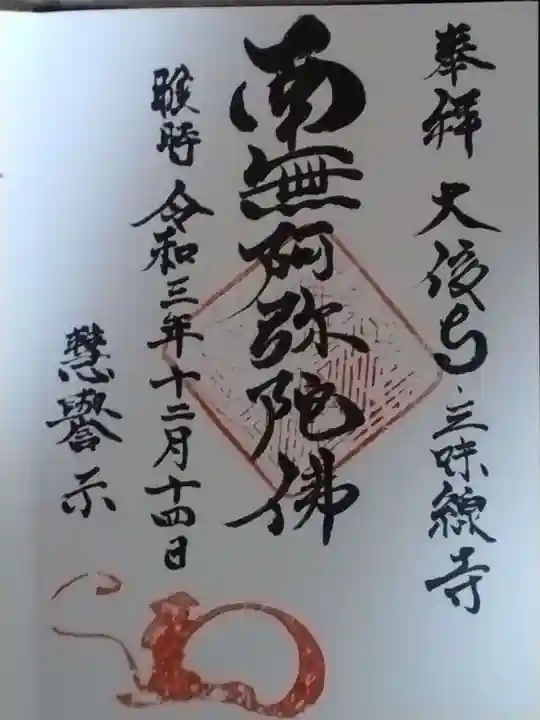 奉拝 大信寺 三味線寺
南無阿弥陀佛
睺時 令和三年十二月十四日
慧譽示